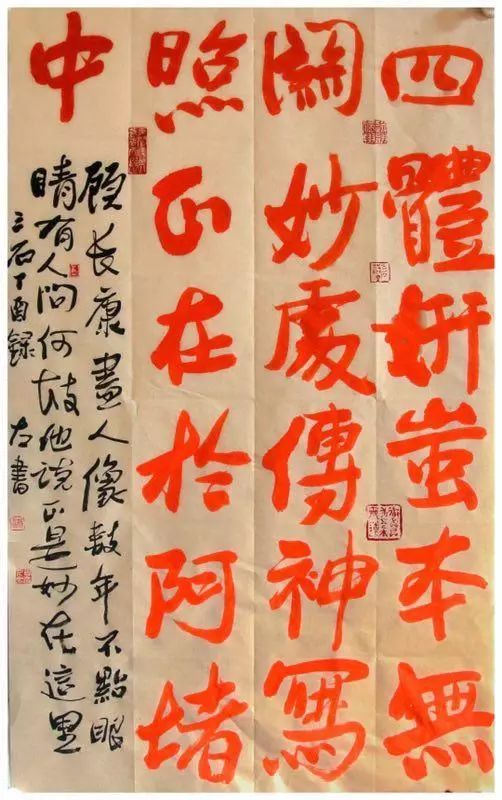 四體妍蚩本無
關妙處傳神寫
照正在於阿堵
中
顧長康畫人像數年不點眼
睛有人問何故他說正是妙在這里
三石丁酉錄 左書